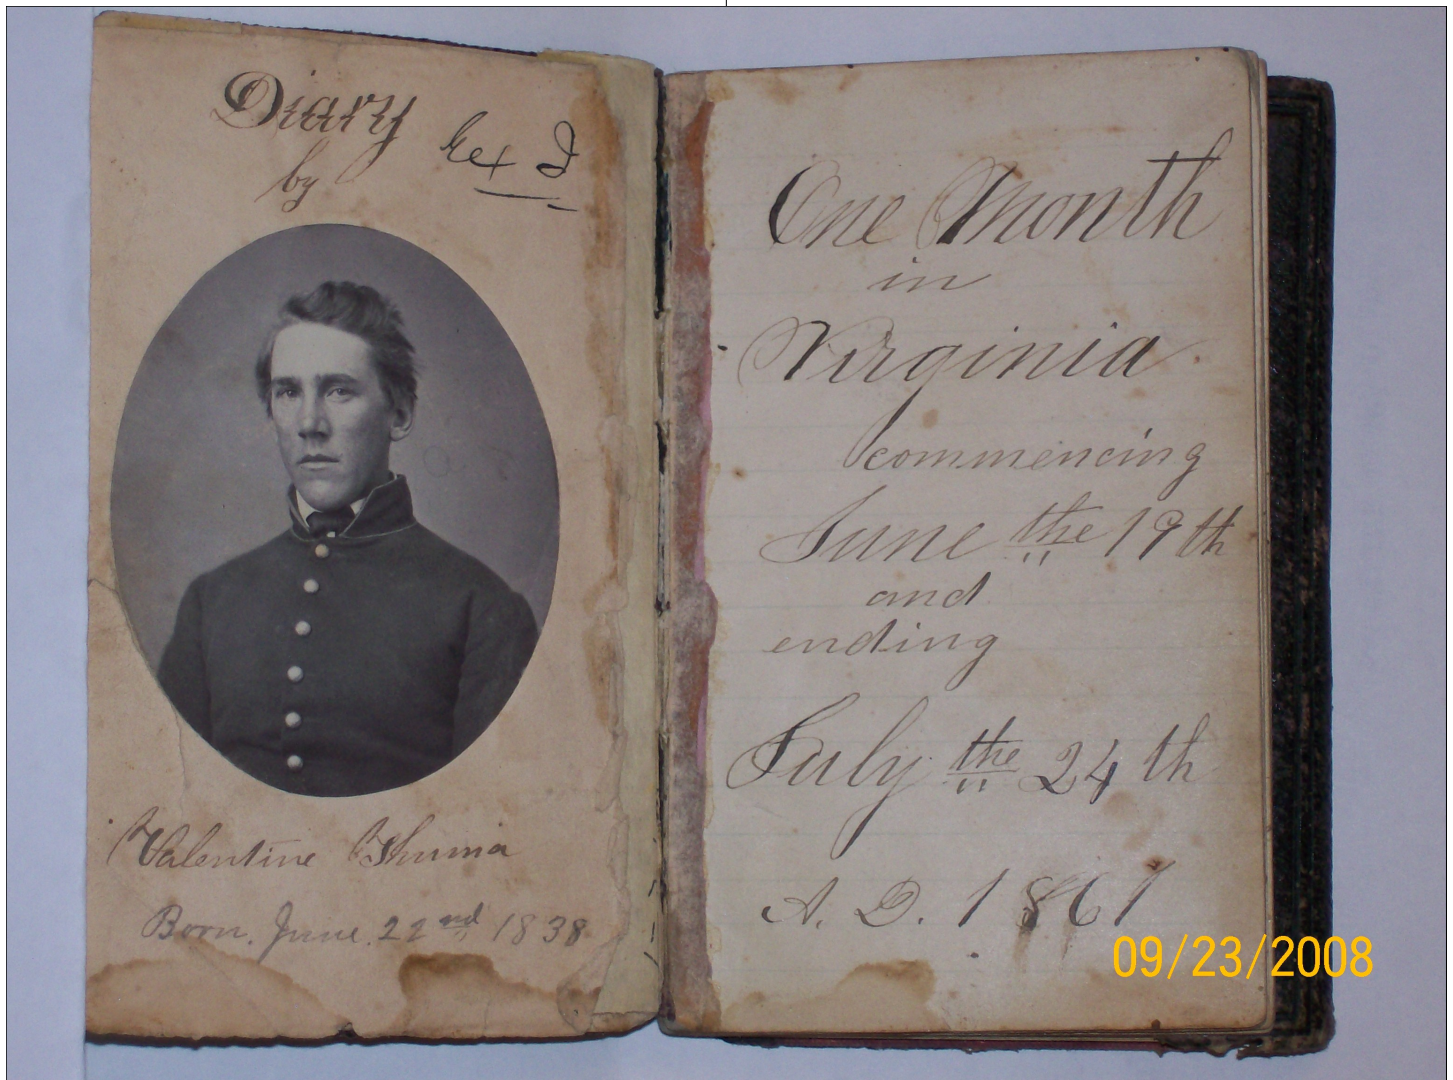 Diary
by
Ex I
Valentine Thuma
Born. June. 22nd 1838
One Month
in
Virginia
commencing
June the 19th
and
ending
July the 24th
A. D. 1861
09/23/2008